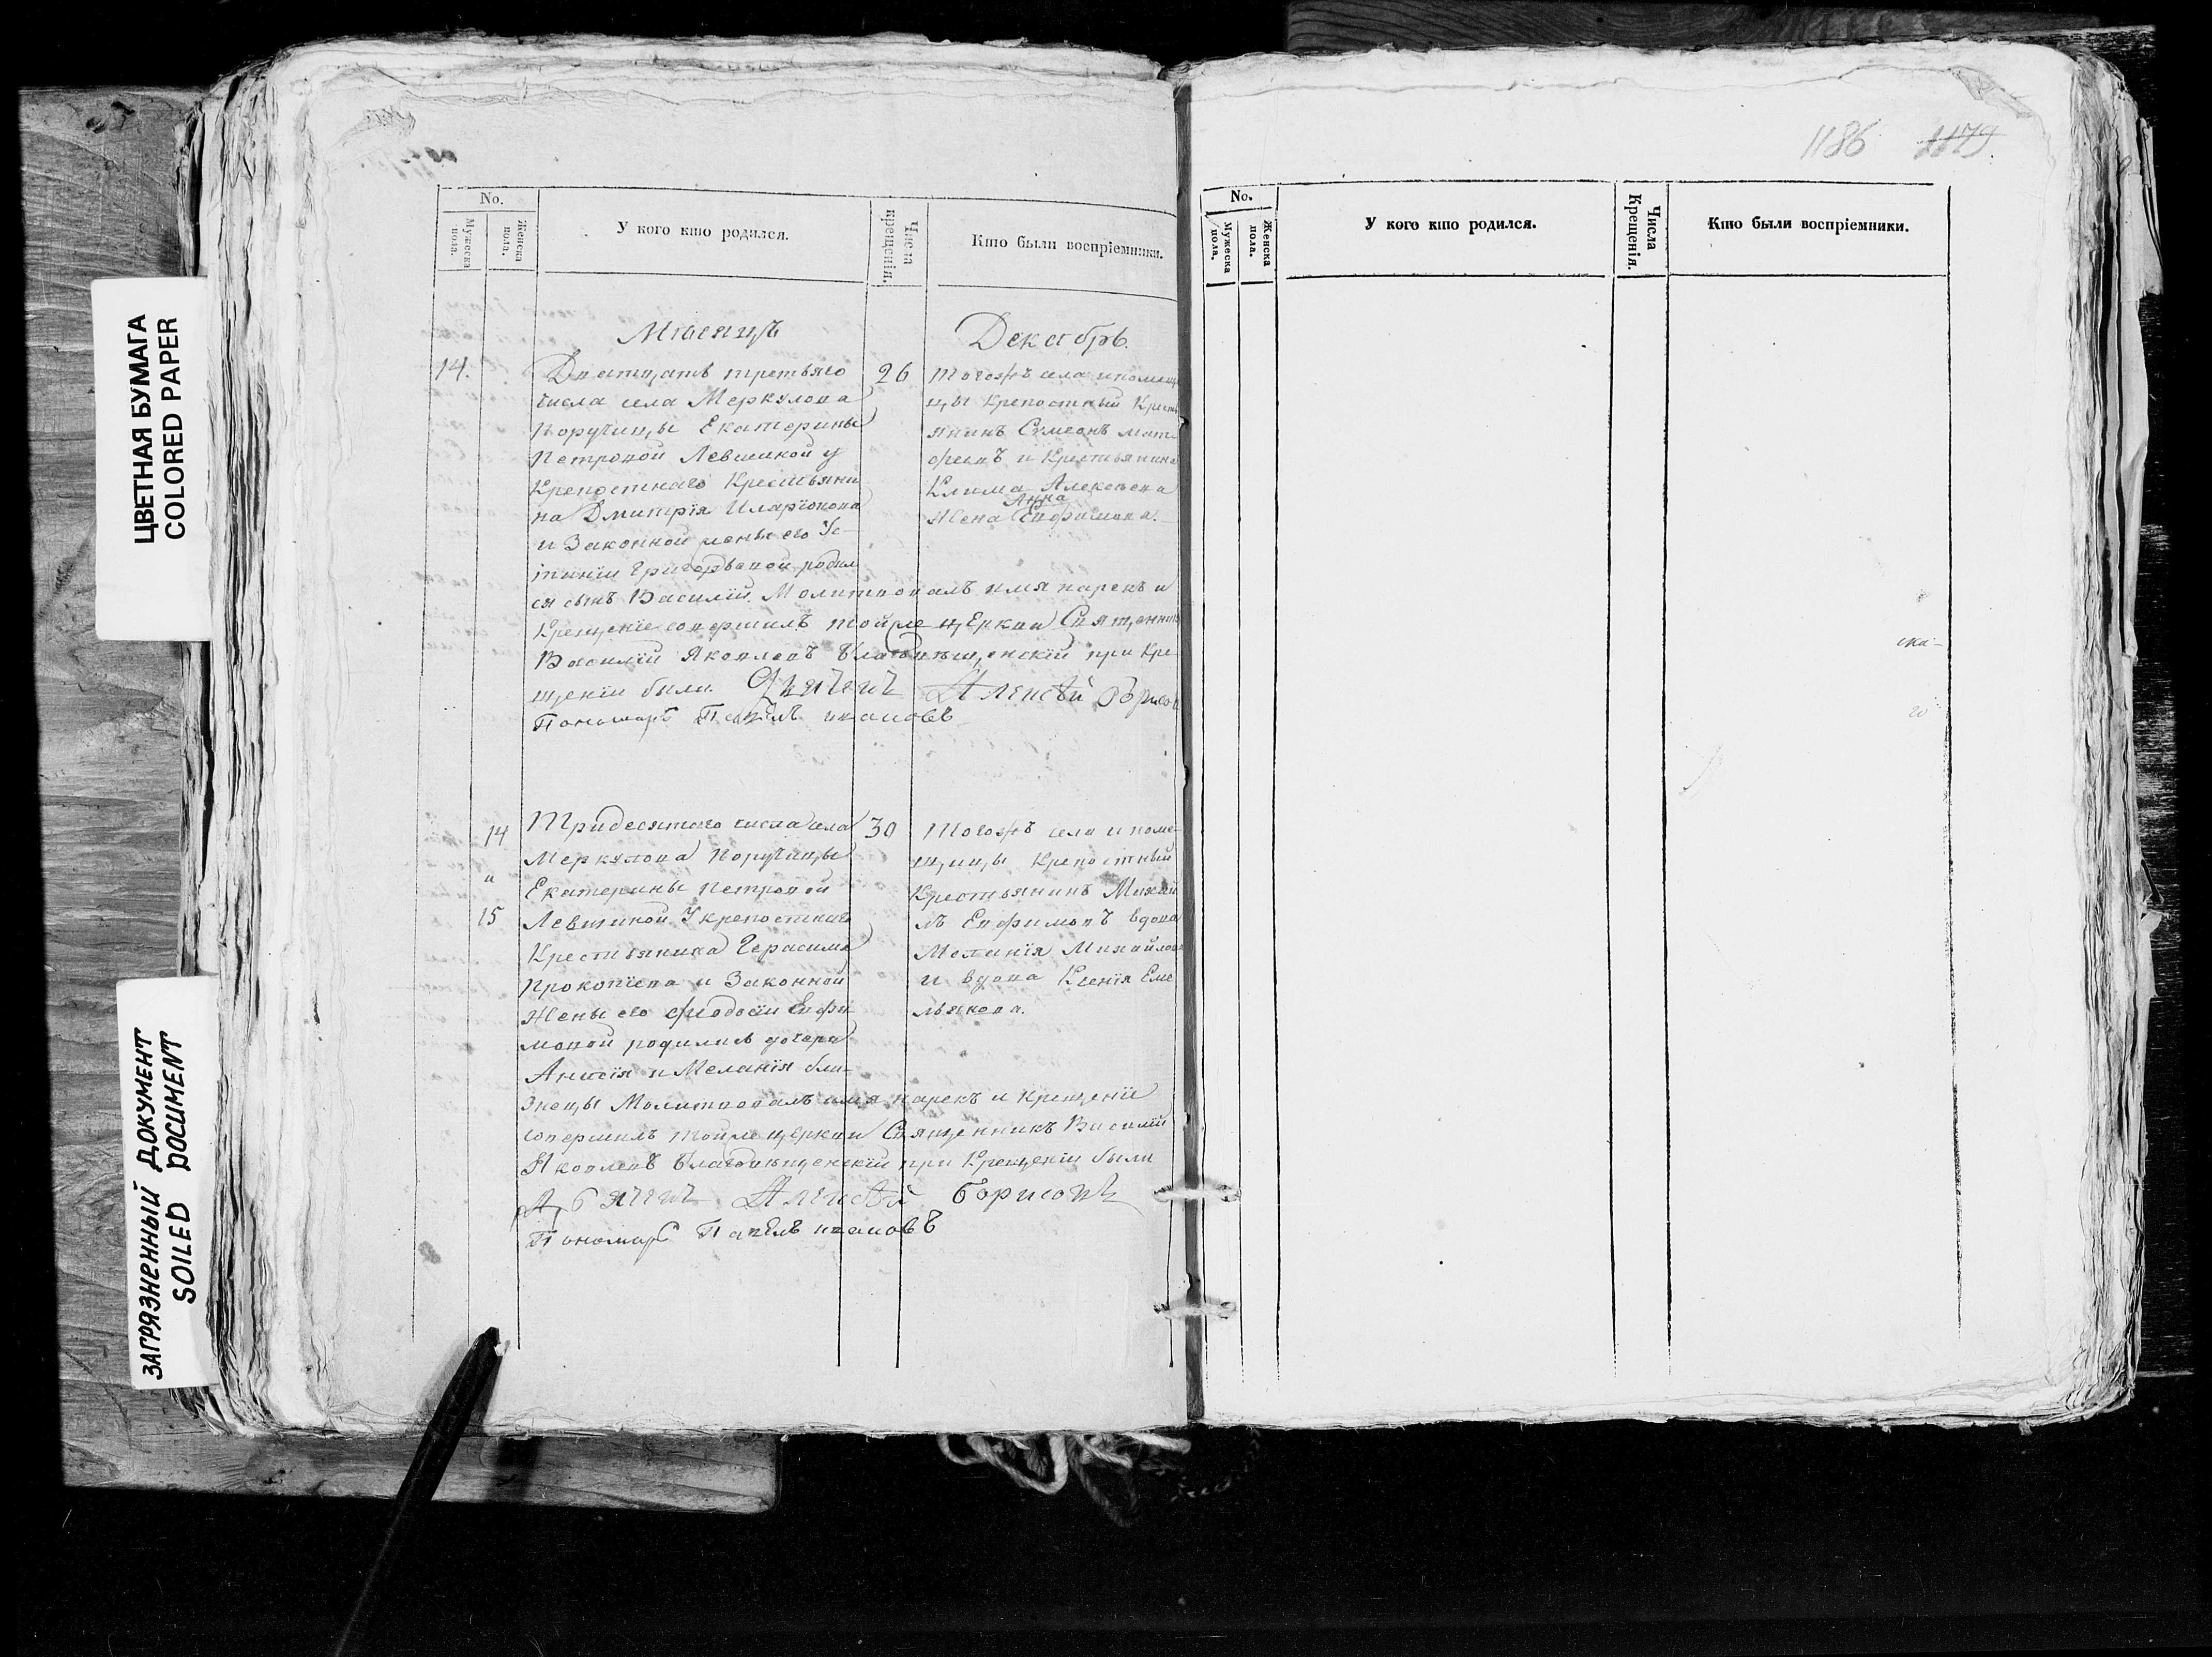 ЦВЕТНАЯ БУМАГА
COLORED PAPER
ЗАГРЯЗНЕННЫЙ ДОКУМЕНТ
SOILED DOCUMENT
No.
Мужеска пола.
Женска пола.
У кого кто родился.
Числа крещенія.
Кто были воспріемники.
Мѣсяцъ
Декабрь.
14.
Дватцать третьяго
числа села Меркулова
Порутчицы Екатерины
Петровой Левшиной у
Крепостнаго Крестьяни
на Дмитрія Иларіонова
и Законной жены его Ус-
тиніи Григорьевой родил
ся сынъ Василій. Молитвовалъ имя нарекъ и
Крещеніе совершилъ тойже церкви Священникъ
Василій Яковлевъ Благовѣщенскій при Кре
щеніи были. Дьячекъ Алексѣй Борисов
Пономарь Павелъ Ивановъ
26
Тогожъ села и помещ
цы Крепостный Кресть
янинъ Сумеонъ Мат-
феевъ и Крестьянина
Клима Алексѣева
Жена Анна Евфимова.
14
и
15
Тридесятаго числа села
Меркулова Порутчицы
Екатерины Петровой
Левшиной У крепостнаго
Крестьянина Герасима
Прокопіева и Законной
Жены его Феодосіи Евфи
мовой родились дочери
Анисія и Меланія бли-
знецы Молитвовалъ имя нарекъ и Крещеніе
совершилъ тойже церкви Священникъ Василій
Яковлевъ Благовѣщенскій при Крещеніи были
Дьячекъ Алексѣй Борисовъ
Пономарь Павелъ Ивановъ
30
Тогожъ села и поме-
щицы Крепостный
Крестьянинъ Михаи
лъ Евфимовъ вдова
Меланія Михайлова
и вдова Ксенія Еме
льянова.
1186 1179
No.
Мужеска пола.
Женска пола.
У кого кто родился.
Числа Крещенія.
Кто были воспріемники.